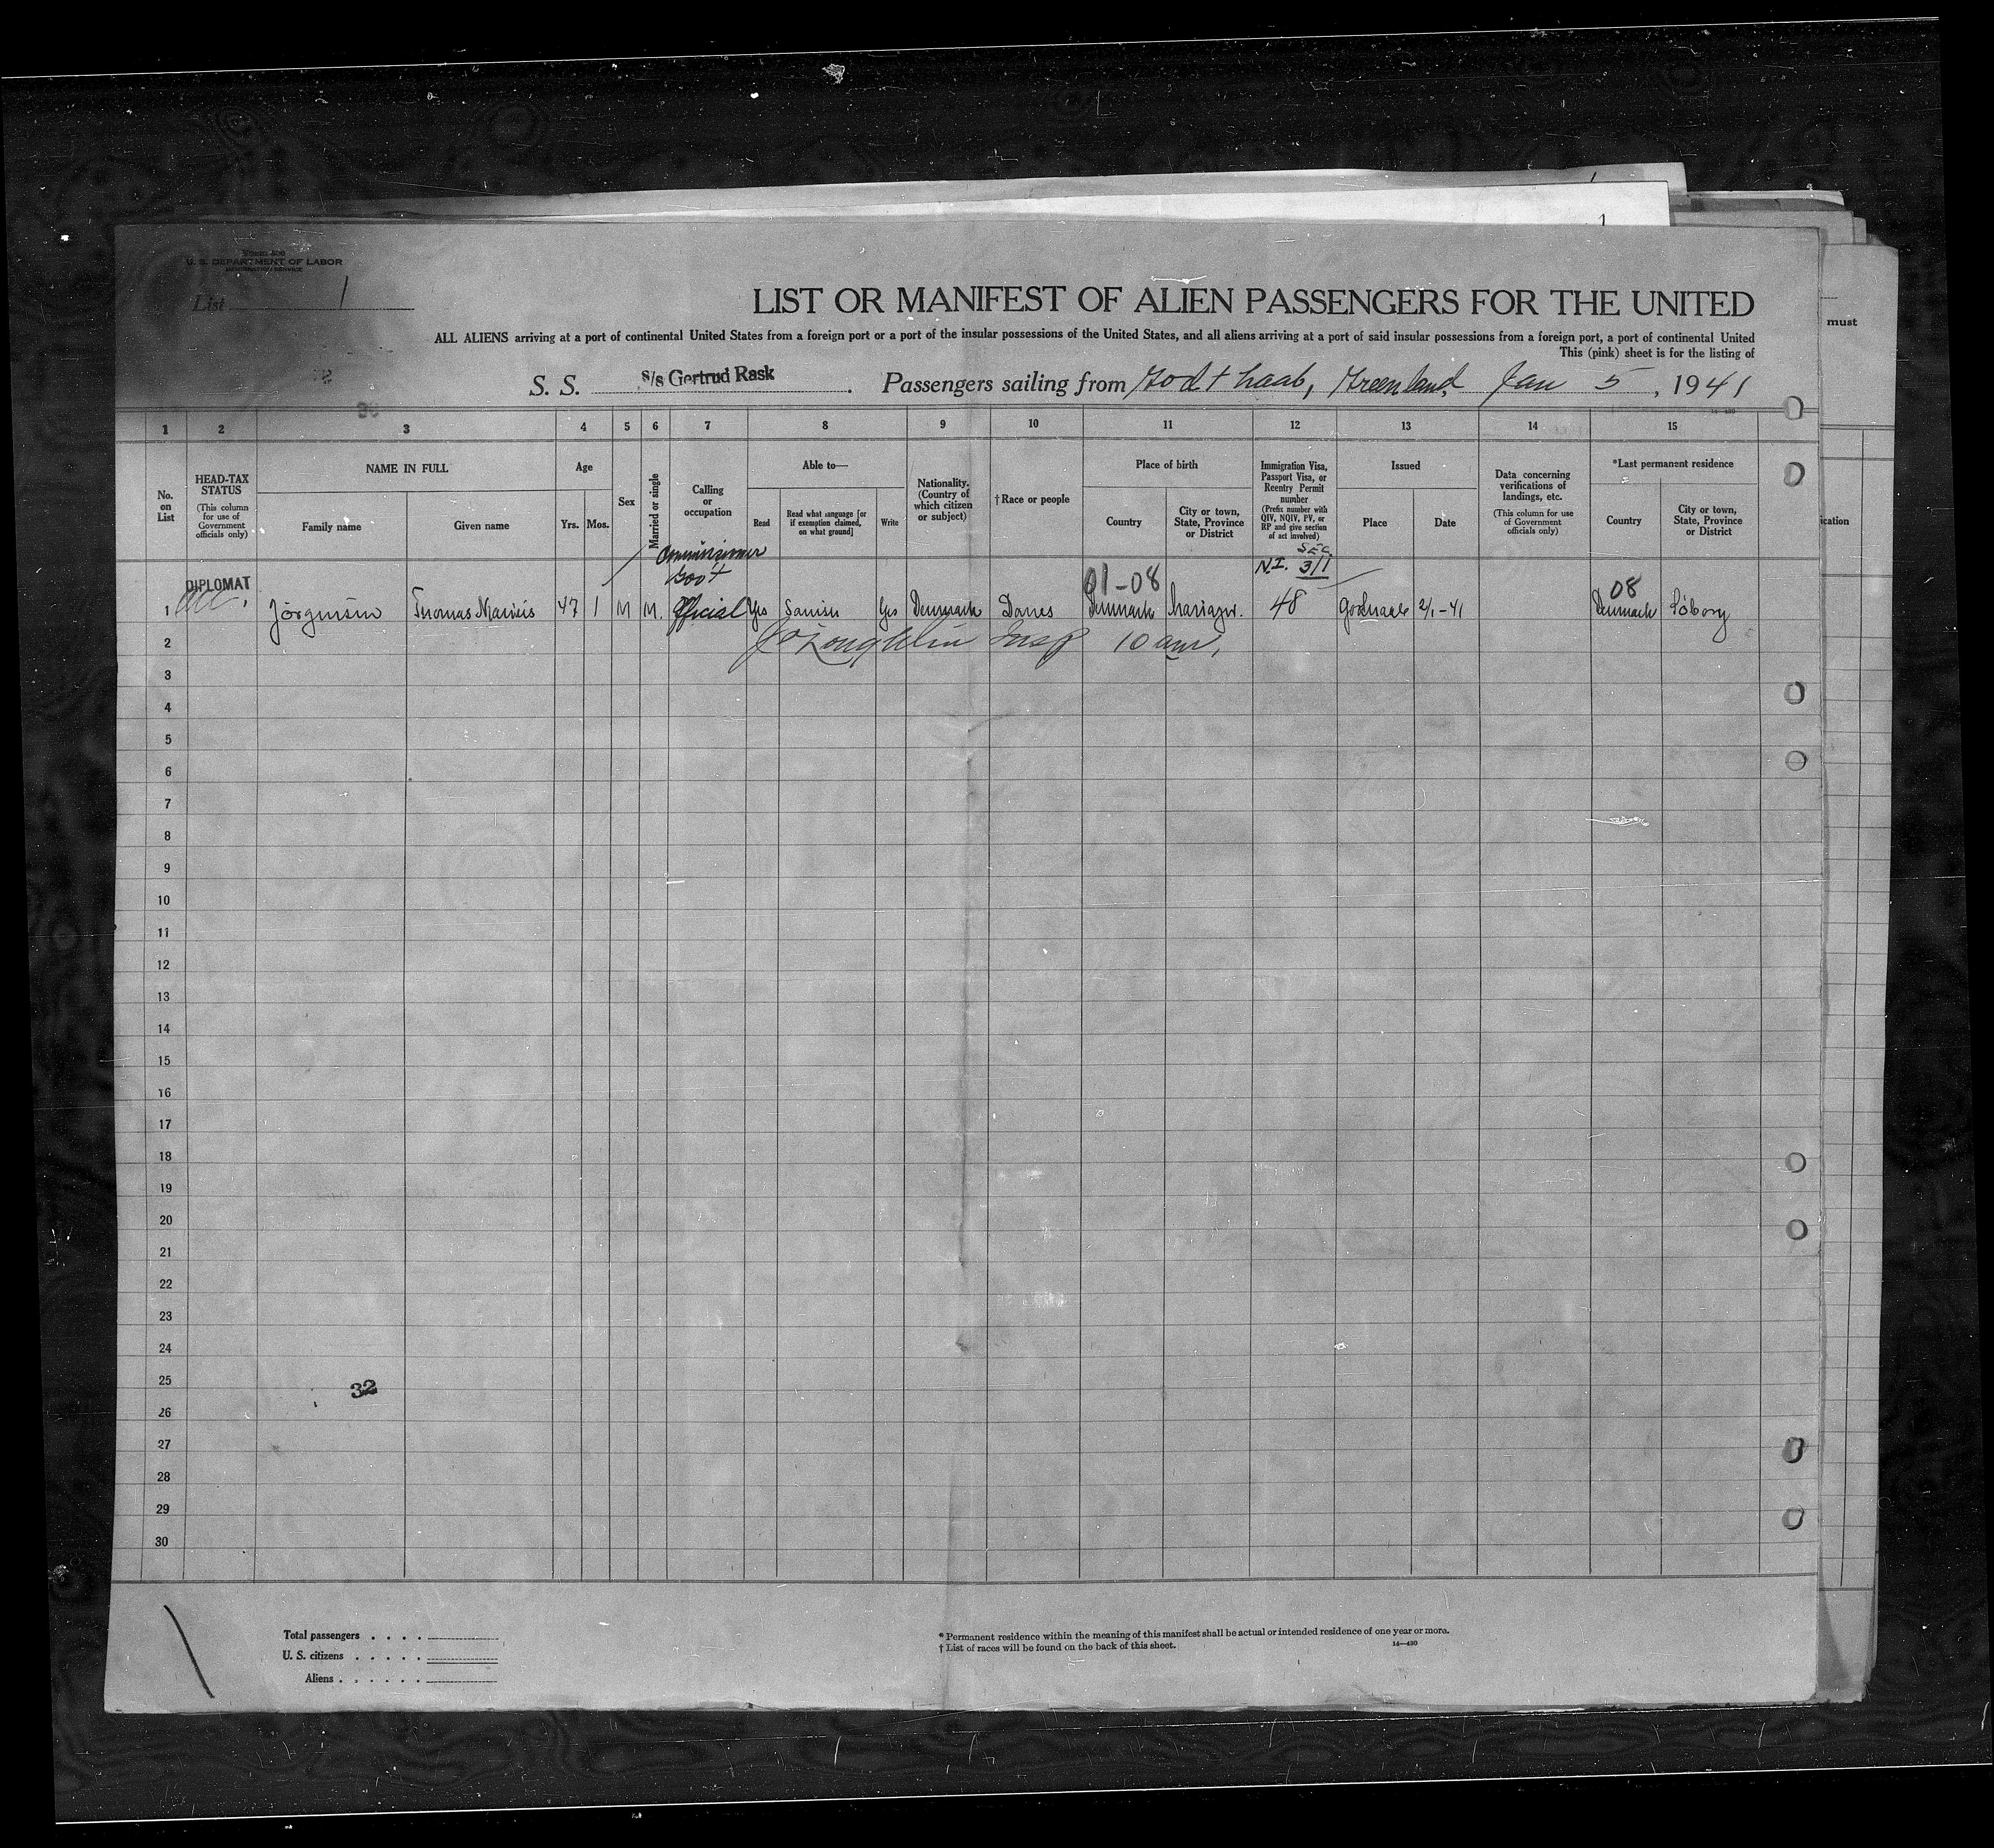 Form 500
U. S. DEPARTMENT OF LABOR
IMMIGRATION SERVICE
List 1
LIST OR MANIFEST OF ALIEN PASSENGERS FOR THE UNITED
ALL ALIENS arriving at a port of continental United States from a foreign port or a port of the insular possessions of the United States, and all aliens arriving at a port of said insular possessions from a foreign port, a port of continental United
This (pink) sheet is for the listing of
must
S. S. S/s Gertrud Rask. Passengers sailing from Godthaab, Greenland, Jan 5, 1941
14—430
1 2 3 4 5 6 7 8 9 10 11 12 13 14 15
No. on List
HEAD-TAX STATUS
(This column for use of Government officials only)
NAME IN FULL
Family name
Given name
Age
Yrs. Mos.
Sex
Married or single
Calling or occupation
Able to—
Read
Read what language [or if exemption claimed, on what ground]
Write
Nationality. (Country of which citizen or subject)
†Race or people
Place of birth
Country
City or town, State, Province or District
Immigration Visa, Passport Visa, or Reentry Permit number
(Prefix number with QIV, NQIV, PV, or RP and give section of act involved)
Issued
Place
Date
Data concerning verifications of landings, etc.
(This column for use of Government officials only)
*Last permanent residence
Country
City or town, State, Province or District
ication
Commissioner
Gov't
SEC.
N.I. 3/1
DIPLOMAT
01-08
08
1 Jörgensen Thomas Marius 47 1 M M. Official Yes Danish Yes Denmark Danes Denmark Mariager. 48 Godthaab 2/1-41 Denmark Söborg
2 J O'Loughlin Insp 10 am,
3
4
5
6
7
8
9
10
11
12
13
14
15
16
17
18
19
20
21
22
23
24
25
32
26
27
28
29
30
Total passengers . . . .
U. S. citizens . . . . .
Aliens . . . . . .
* Permanent residence within the meaning of this manifest shall be actual or intended residence of one year or more.
† List of races will be found on the back of this sheet.
14—430